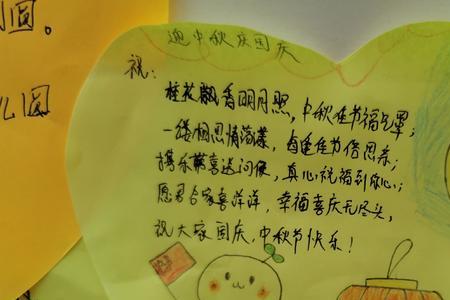 圆。
儿圆
迎中秋庆国庆
祝:
桂花飘香明月照,中秋佳节福气罩;
一缕相思情荡漾,每逢佳节倍思亲;
携乐带喜送问候,真心祝福到你心;
愿君合家喜洋洋,幸福喜庆无尽头,
祝大家国庆、中秋节快乐!